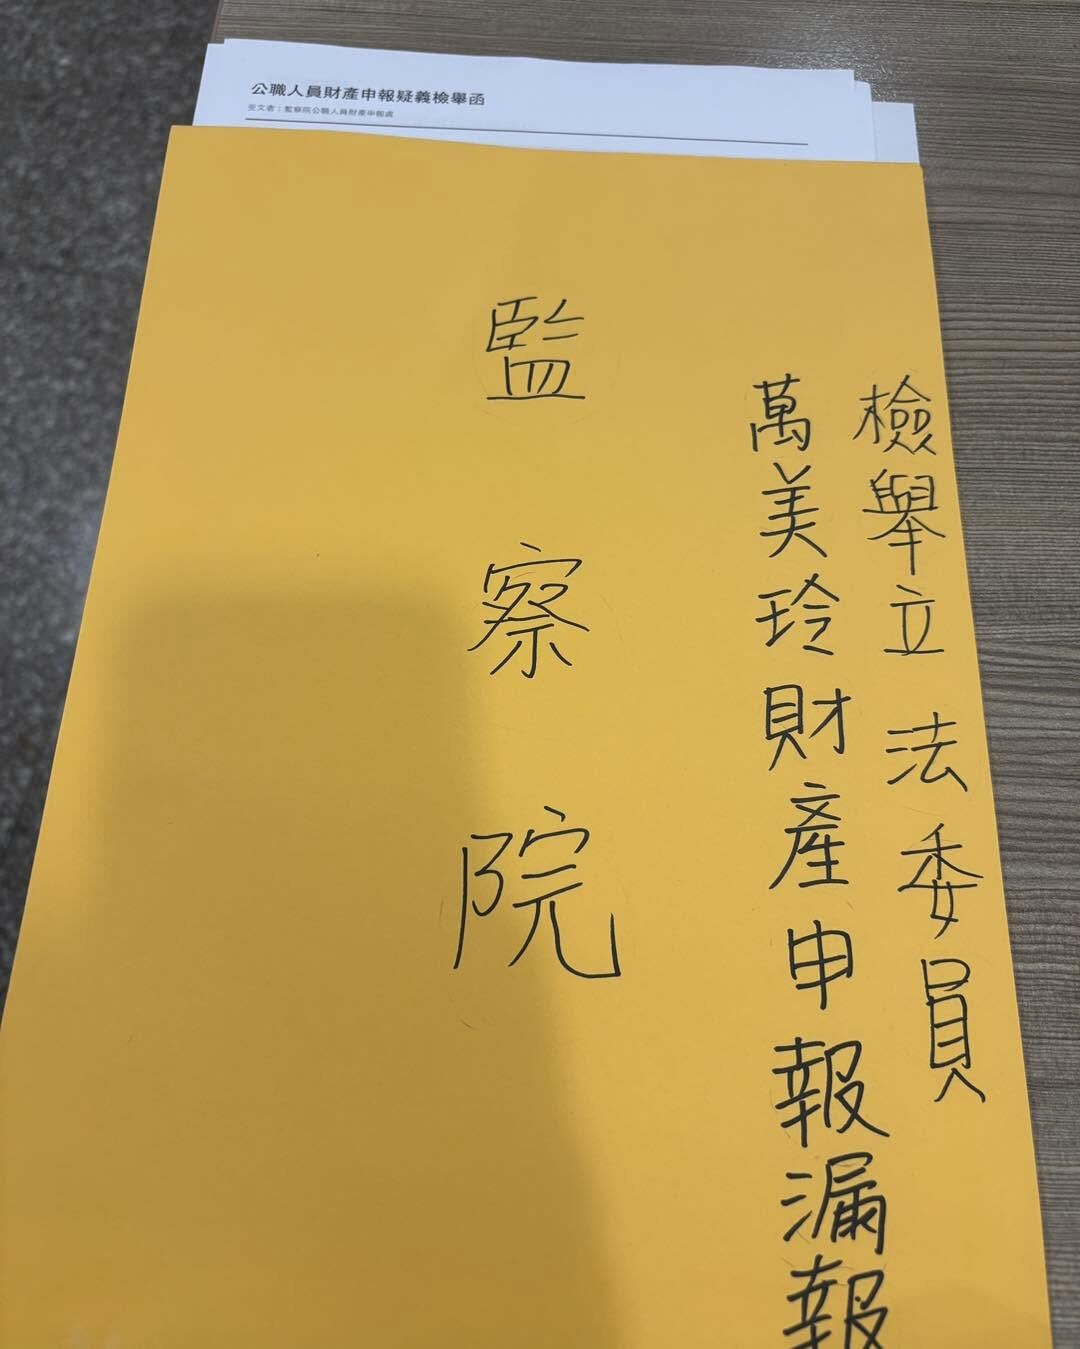 公職人員財產申報疑義檢舉函
受文者：監察院公職人員財產申報處
檢舉立法委員
萬美玲財產申報漏報
監察院